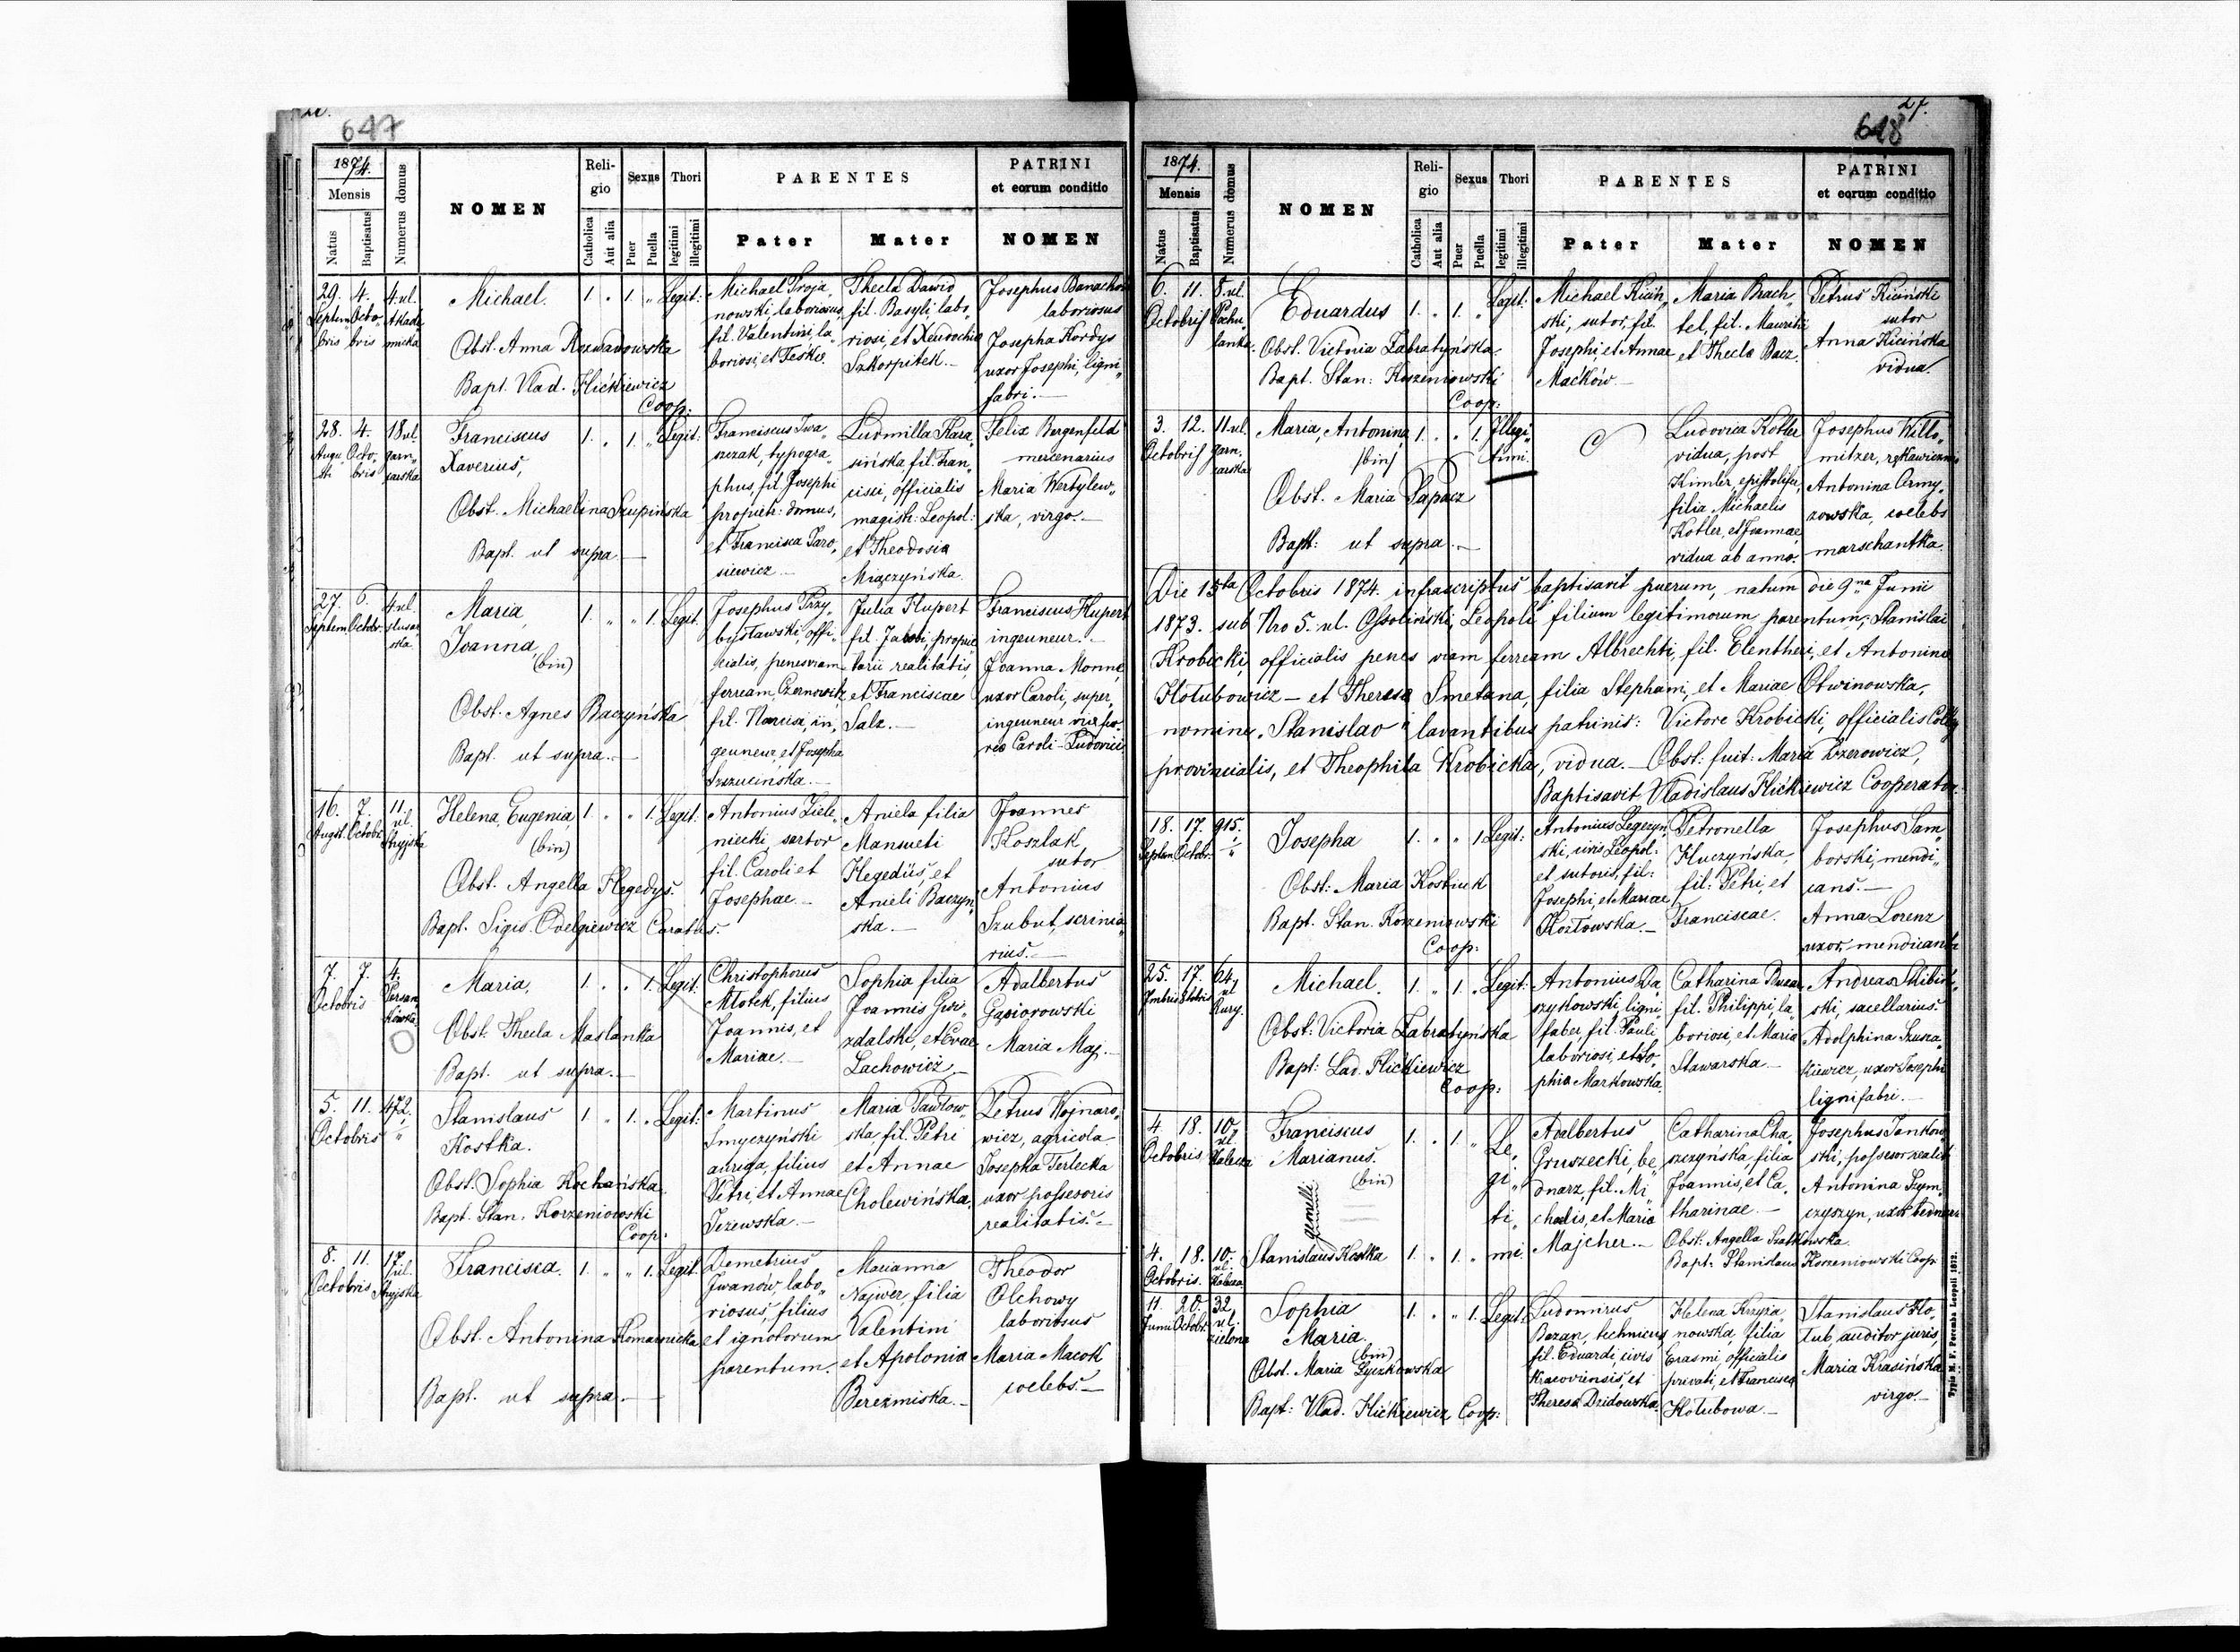 647
1874.
Mensis
Natus
Baptisatus
Numerus domus
NOMEN
Reli-
gio
Catholica
Aut alia
Sexus
Puer
Puella
Thori
legitimi
illegitimi
PARENTES
Pater
Mater
PATRINI
et eorum conditio
NOMEN
29. Septem„bris
4. Octo„bris
4. ul. Akade„micka
Michael.
Obst. Anna Rozwadowska
Bapt. Vlad. Flićkiewicz
Coop:
1. „ 1. „ Legit:
Michael Troja„
nowski, laboriosus,
fil. Valentini, la„
boriosi, et Feśkie.
Thecla Dawid
fil. Basyli, labo„
riosi, et Xeudochia
Szkorpitek.—
Josephus Banachow
laboriosus
Josepha Kordys
uxor Josephi, ligni„
fabri.—
28. Augu„sti
4. Octo„bris
18 ul. garn„carska
Franciscus
Xaverius,
Obst. Michaelina Szupińska
Bapt. ut supra.—
1. „ 1. „ Legit:
Franciscus Iwa„
szczak, typogra„
phus, fil. Josephi
propriet: domus,
et Francisca Jaro„
siewicz.—
Ludmilla Kara„
sińska, fil. Fran„
cisci, officialis
magistr: Leopol:
et Theodosia
Miączyńska.
Felix Bergenfeld
mercenarius
Maria Wertylew„
ska, virgo.—
27. Septem.
6. Octobr.
4. ul. slusar„ska
Maria,
Joanna,
(bin)
Obst. Agnes Baczyńska
Bapt. ut supra.—
1. „ „ 1. Legit.
Josephus Przy„
bysławski, offi„
cialis, penes viam
ferream, Czernowitz,
fil. Narcisi, in„
geuneur, et Josepha
Szczucińska.—
Julia Hupert
fil. Jakobi, proprie
tarii realitatis,
et Franciscae
Salz.—
Franciscus Hupert
ingeuneur.—
Joanna Monne,
uxor Caroli, super„
ingeuneur
Caroli-Ludovici
16. August.
7. Octobr.
11. ul. Stryjska
Helena, Eugenia,
(bin)
Obst. Angella Hegedys.
Bapt. Sigis. Odelgiewicz Curatus.
1. „ „ 1. Legit.
Antonius Ziele„
niecki, sartor
fil. Caroli et
Josephae.—
Aniela filia
Mansueti
Hegedüs, et
Anieli Baczyn„
ska.—
Joannes
Koszlak
sutor
Antonius
Szubut, scrinia„
rius.—
7. Octobris
7.
4. Persen„kówka
Maria,
Obst. Thecla Maślanka
Bapt. ut supra.—
1. „ „ 1. Legit.
Christophorus
Młotek, filius
Joannis, et
Mariae.—
Sophia filia
Joannis Gwi„
zdalski, et Evae
Lachowicz.—
Adalbertus
Gąsiorowski
Maria Maj.—
5. Octobris
11.
472.
Stanislaus
Kostka.
Obst. Sophia Kochańska.
Bapt. Stan. Korzeniowski
Coop:
1. „ 1. „ Legit:
Martinus
Smyczyński
auriga, filius
Petri, et Annae
Jeżewska.—
Maria Pawłow„
ska, fil. Petri
et Annae
Cholewińska.
Petrus Wojnaro„
wicz, agricola
Josepha Terlecka
uxor possesoris
realitatis.—
8. Octobris
11.
17. ul. Stryjska
Francisca.
Obst. Antonina Komarnicka
Bapt. ut supra.—
1. „ „ 1. Legit.
Demetrius
Iwanów, labo„
riosus, filius
et ignotorum
parentum.
Marianna
Najwer, filia
Valentini
et Apolonia
Berezniska.—
Theodor
Olchowy
laboriosus
Maria Macok
coelebs.—
27.
648
1874.
Mensis
Natus
Baptisatus
Numerus domus
NOMEN
Reli-
gio
Catholica
Aut alia
Sexus
Puer
Puella
Thori
legitimi
illegitimi
PARENTES
Pater
Mater
PATRINI
et eorum conditio
NOMEN
6. Octobris
11.
8. ul.
Eduardus
Obst. Victoria Zabratyńska.
Bapt. Stan: Korzeniowski
Coop:
1. „ 1. „ Legit:
Michael Kiciń„
ski, sutor, fil.
Josephi, et Annae
Maćków.—
Maria Brach„
tel, fil. Mauritii
et Thecla Bacz.
Petrus Kiciński
sutor
Anna Kicińska
vidua.
3. Octobris
12.
11. ul. garn„carska
Maria, Antonina
(bin)
Obst. Maria Papacz
Bapt: ut supra.—
1. „ „ 1. Illegi„
timi.
Ludovica Kotler
vidua, post
Kimler,
filia Michaelis
Kotler, et Joannae,
vidua ab anno.
Josephus Willo„
mitzer, rękawicznik
Antonina Army„
zowska, coelebs
marschantka.
Die 15ta Octobris 1874. infrascriptus baptisavit puerum, natum die 9na Junii
1873. sub Nro 5. ul. Ossolinski, Leopoli filium legitimorum parentum; Stanislai
Krobicki, officialis penes viam ferream Albrechti, fil. Eleutheri, et Antonina
Hołubowicz — et Theresa Smetana, filia Stephani, et Mariae Otwinowska,
nomine „Stanislao" lavantibus patrinis: Victore Krobicki, officialis
provincialis, et Theophila Krobicka, vidua.— Obst: fuit: Maria Ezerowicz,
Baptisavit Vladislaus Flićkiewicz Cooperator.
18. Septem.
17. Octobr.
915.
Josepha
Obst: Maria Kostiuk
Bapt. Stan. Korzeniowski
Coop:
1. „ „ 1. Legit:
Antonius Legeżyn„
ski, civis Leopol:
et sutoris, fil:
Josephi, et Mariae
Kozłowska.—
Petronella
Kluczyńska,
fil: Petri, et
Franciscae.
Josephus Sam„
borski, mendi„
cans.—
Anna Lorenz
uxor, mendicantis
25.
17.
64. ul Rury.
Michael.
Obst: Victoria Zabratyńska
Bapt: Lad. Flićkiewicz
Coop:
1. „ 1. „ Legit:
Antonius Da„
szykowski, ligni„
faber, fil. Pauli
laboriosi, et So„
phia Markowska.
Catharina
fil. Philippi, la„
boriosi, et Maria
Stawarska.—
Andreas Skibiń„
ski, sacellarius.
Adolphina Szusz„
kiewicz, uxor Josephi
lignifabri.—
4. Octobris
18.
10. ul. Kalecza
Franciscus
Marianus.
(bin)
gemelli.
1. „ 1. „ Le„
gi„
ti„
Adalbertus
Gruszecki, be„
dnarz, fil. Mi„
chaelis, et Maria
Majcher.—
Catharina Cha„
szczyńska, filia
Joannis, et Ca„
tharinae.—
Josephus Jankow„
ski, possesor realit:
Antonina Szym„
czyszyn, uxor bednarza
Obst. Angella Szatkowska.
Bapt: Stanislaus Korzeniowski Coop:
4. Octobris.
18.
10. ul. Kalecza
Stanislaus Kostka
1. „ 1. „ mi
11. Junii
20. Octobr.
32. ul. zielona
Sophia
Maria.
(bin)
Obst. Maria Łyczkowska
Bapt: Vlad. Flićkiewicz Coop:
1. „ „ 1. Legit:
Ludomirus
Bazan, technicus,
fil. Eduardi, civis
Kracoviensis, et
Theresa Dzidowska.
Helena Krzyża„
nowska, filia
Erasmi, officialis
privati, et Francisca
Hołubowa.—
Stanislaus Ho„
łub auditor juris,
Maria Krasińska
virgo.—
Typis M. F. Poremba Leopoli 1872.